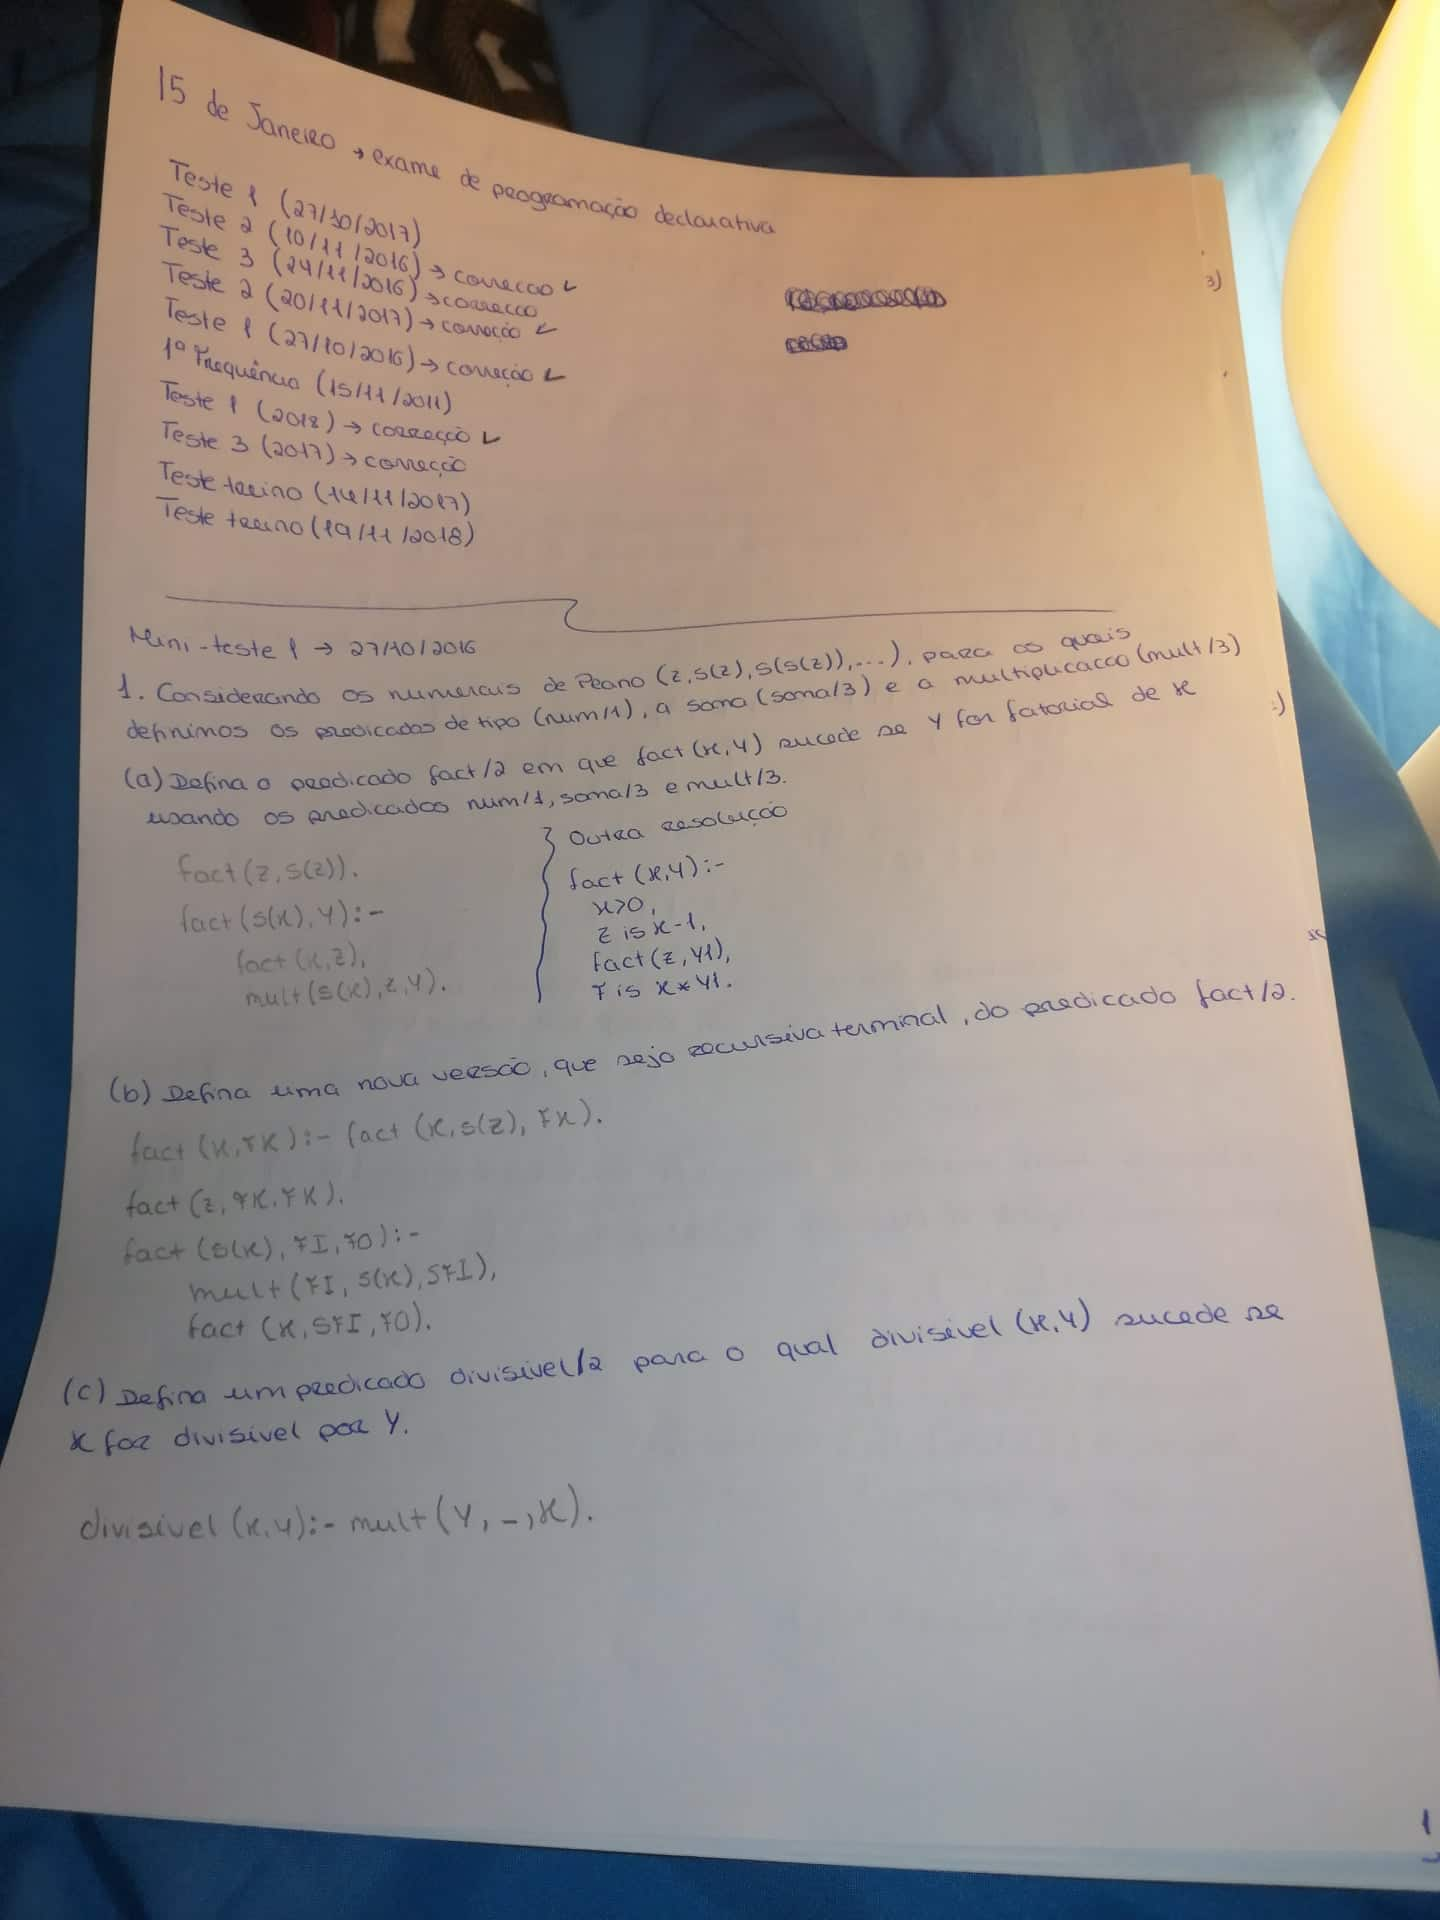 15 de Janeiro → exame de programação declarativa
Teste 1 (27/10/2017)
Teste 2 (10/11/2016) → correcao ✓
Teste 3 (24/11/2016) → correcao
Teste 2 (20/11/2017) → correção ✓
Teste 1 (27/10/2016) → correção ✓
1º Frequência (15/11/2011)
Teste 1 (2018) → correcção ✓
Teste 3 (2017) → correção
Teste treino (14/11/2017)
Teste treino (19/11/2018)
3)
Mini-teste 1 → 27/10/2016
1. Considerando os numerais de Peano (z, s(z), s(s(z)), ...), para os quais
definimos os predicados de tipo (num/1), a soma (soma/3) e a multiplicacao (mult/3)
(a) Defina o predicado fact/2 em que fact(x,y) sucede se Y for fatorial de x
usando os predicados num/1, soma/3 e mult/3.
fact(z, s(z)).
fact(s(x), Y):-
fact(x,z),
mult(s(x), z, Y).
Outra resolução
fact(x,y):-
x>0,
z is x-1,
fact(z, Y1),
Y is x*Y1.
(b) Defina uma nova versão, que seja recursiva terminal, do predicado fact/2.
fact(x, FX):- fact(x, s(z), FX).
fact(z, FX, FX).
fact(s(x), FI, FO):-
mult(FI, s(x), SFI),
fact(x, SFI, FO).
(c) Defina um predicado divisivel/2 para o qual divisivel(x,y) sucede se
x for divisivel por Y.
divisivel(x,y):- mult(Y, _, x).